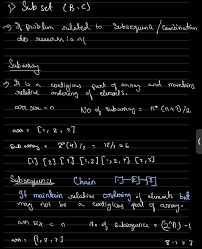 Sub set (B.C)
→ If problem related to Subsequence / Combination
do recursion
Subarray
→ It is a contigious part of array and maintains
relative ordering of elements.
arr size = n No of subarray = n*(n+1)/2
arr = [1, 2, 3]
Sub array = 3*(4)/2 = 12/2 = 6
[1] [2] [3] [1,2] [1,2,3] [2,3]
Subsequence Chain [1]-[2]-[3]
It maintain relative ordering of elements but
may not be a contigious part of array.
arr size = n No of Subsequence = (2^n) - 1
arr = [1, 2, 3] 8-1 = 7